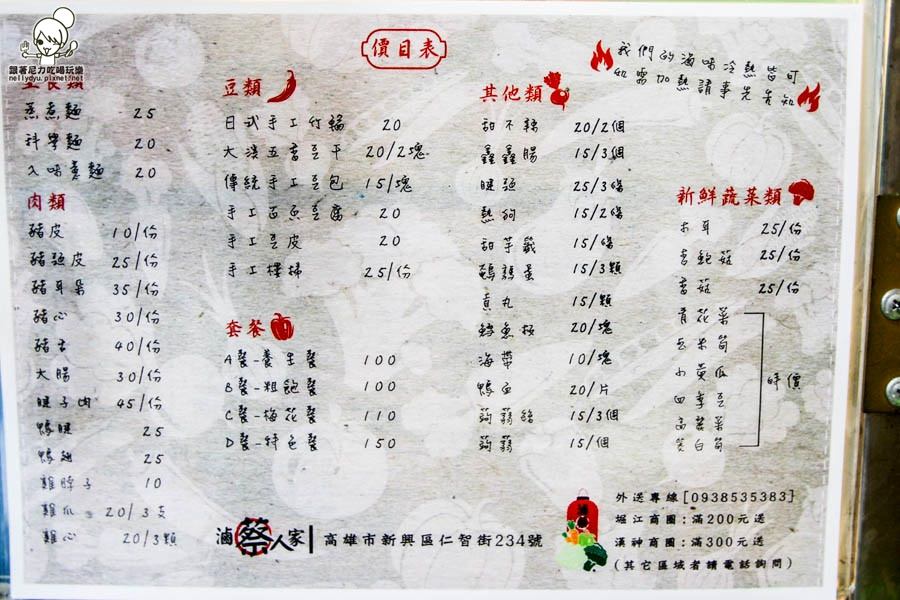 跟著尼力吃喝玩樂
nellydyu.pixnet.net
價目表
我們的滷味冷熱皆可
如需加熱請事先告知
蒸煮麵 25
科學麵 20
入味煮麵 20
肉類
豬皮 10/份
豬頭皮 25/份
豬耳朵 35/份
豬心 30/份
豬舌 40/份
大腸 30/份
腱子肉 45/份
鴨腱 25
鴨翅 25
雞脖子 10
雞爪 20/3支
雞心 20/3顆
豆類
日式手工竹輪 20
大溪五香豆干 20/2塊
傳統手工豆包 15/塊
手工百頁豆腐 20
手工豆皮 20
手工樓梯 25/份
套餐
A餐-養生餐 100
B餐-粗飽餐 100
C餐-梅花餐 110
D餐-特色餐 150
其他類
甜不辣 20/2個
鑫鑫腸 15/3個
25/3條
熱狗 15/2條
甜芋籤 15/條
鵪鶉蛋 15/3顆
貢丸 15/顆
鱈魚板 20/塊
海帶 10/塊
鴨血 20/片
蒟蒻絲 15/3個
蒟蒻 15/個
新鮮蔬菜類
木耳 25/份
杏鮑菇 25/份
香菇 25/份
青花菜
玉米筍
小黃瓜
四季豆
高麗菜
筊白筍
時價
滷蔡人家
高雄市新興區仁智街234號
外送專線[0938535383]
堀江商圈:滿200元送
漢神商圈:滿300元送
(其它區域者請電話詢問)